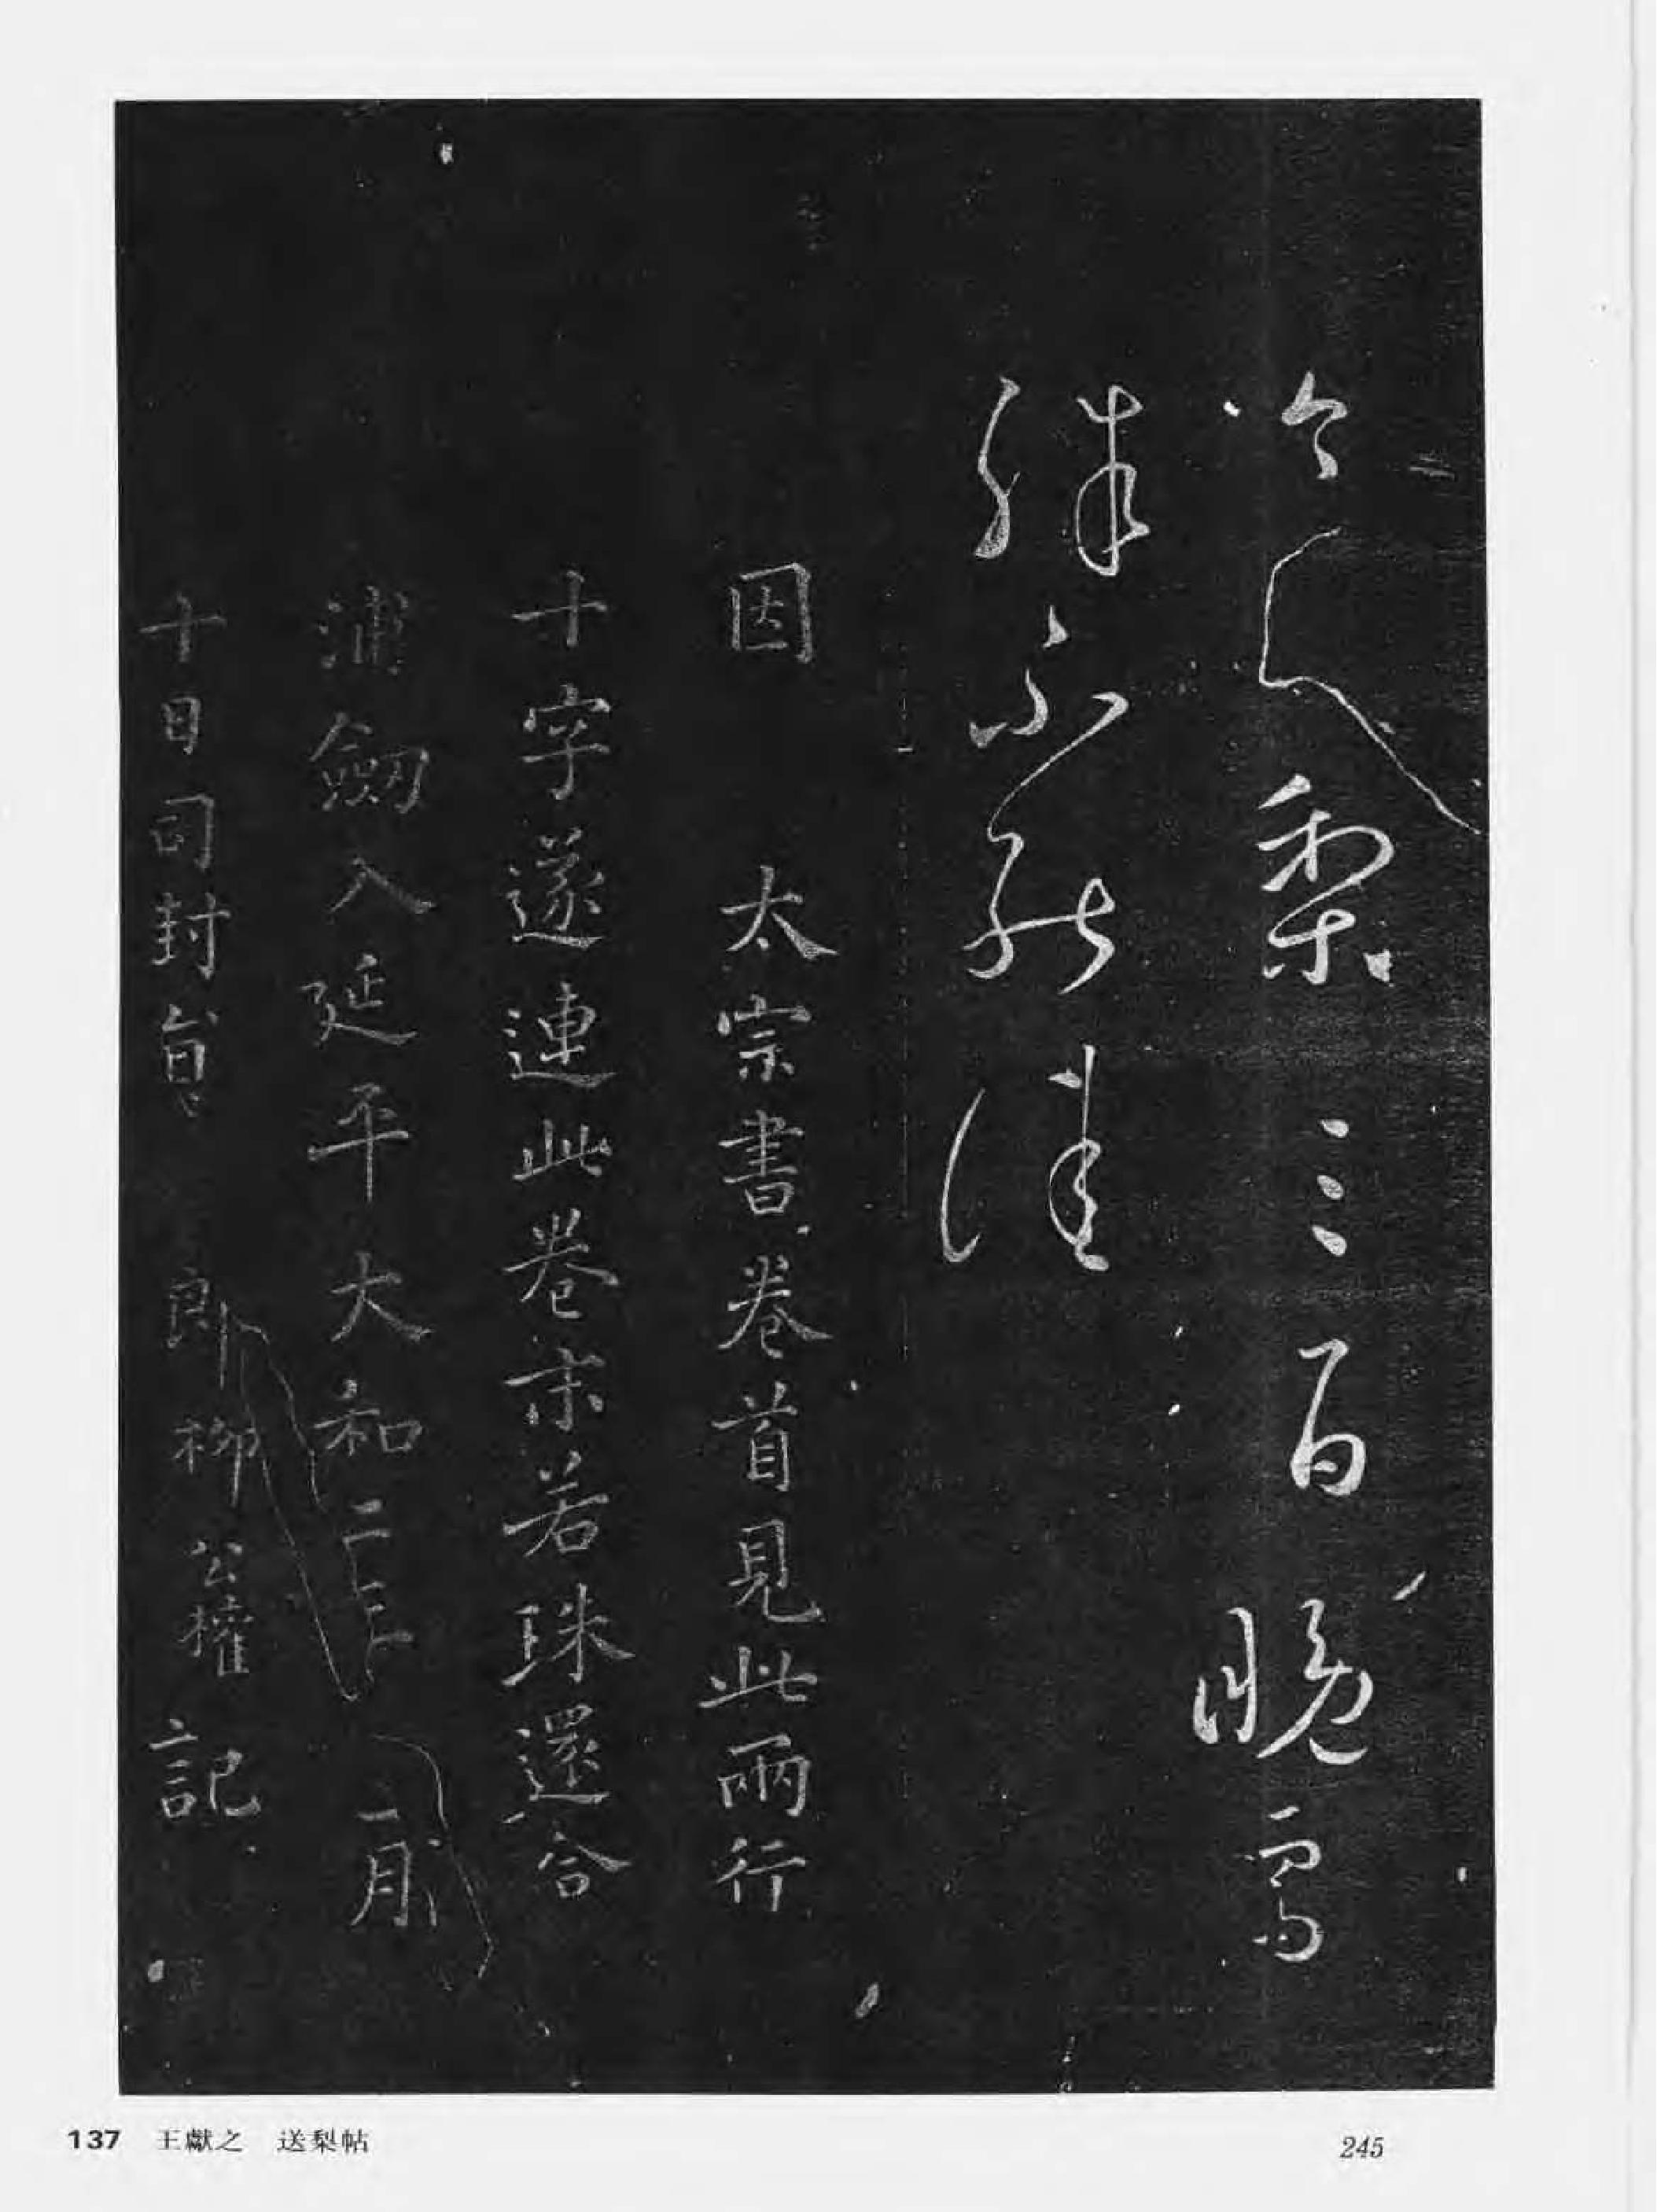 今送梨三百晚雪
殊不能佳
因 太宗書卷首見此兩行
十字遂連此卷末若珠還合
浦劒入延平大和二三月
十日司封員 郎柳公權記
137 王獻之 送梨帖
245